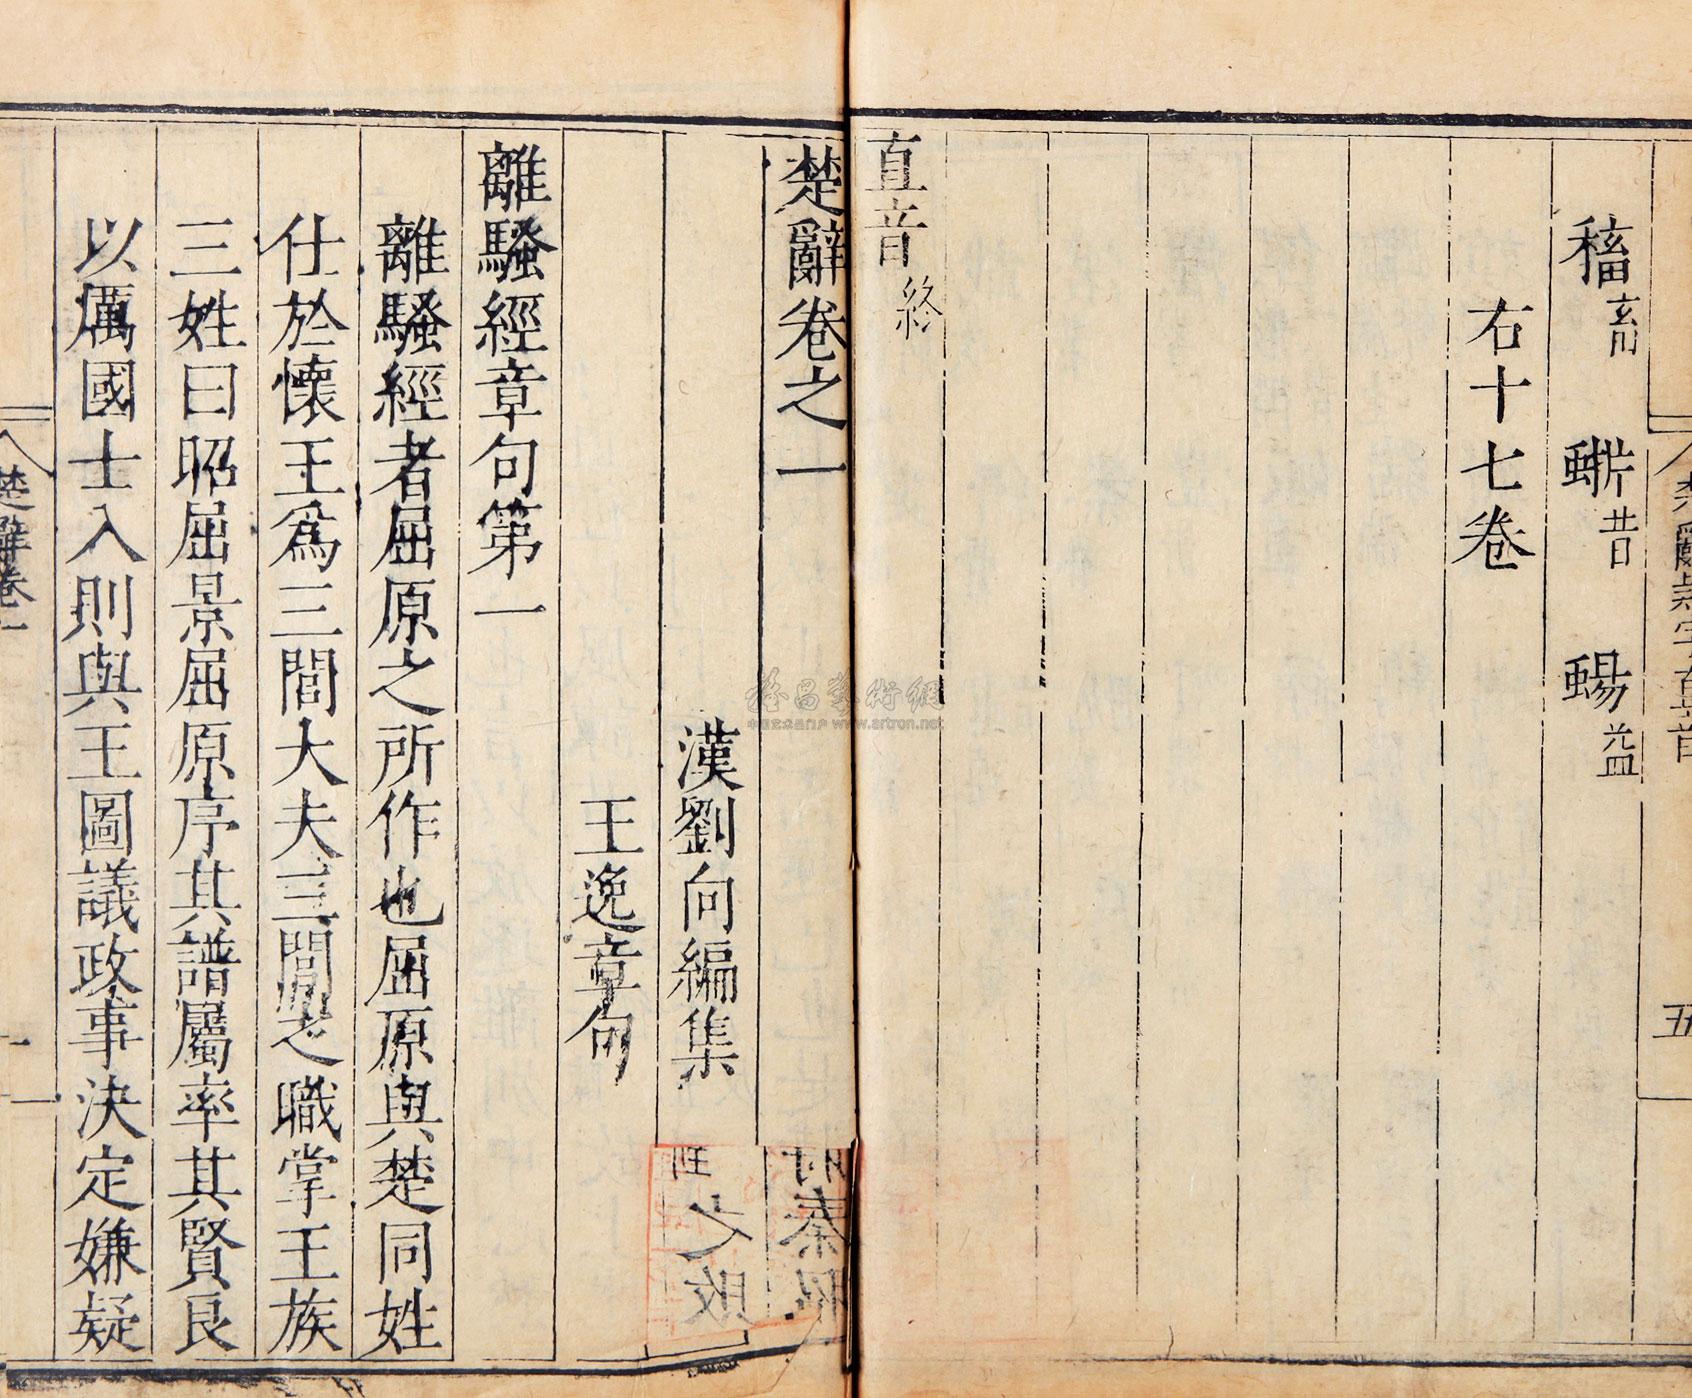 稸畜　蜥昔　蜴益
右十七卷
直音終
楚辭卷之一
漢劉向編集
王逸章句
離騷經章句第一
離騷經者屈原之所作也屈原與楚同姓
仕於懷王爲三閭大夫三閭之職掌王族
三姓曰昭屈景屈原序其譜屬率其賢良
以厲國士入則與王圖議政事決定嫌疑
楚辭卷一
楚辭疑字直音
五
www.artron.net